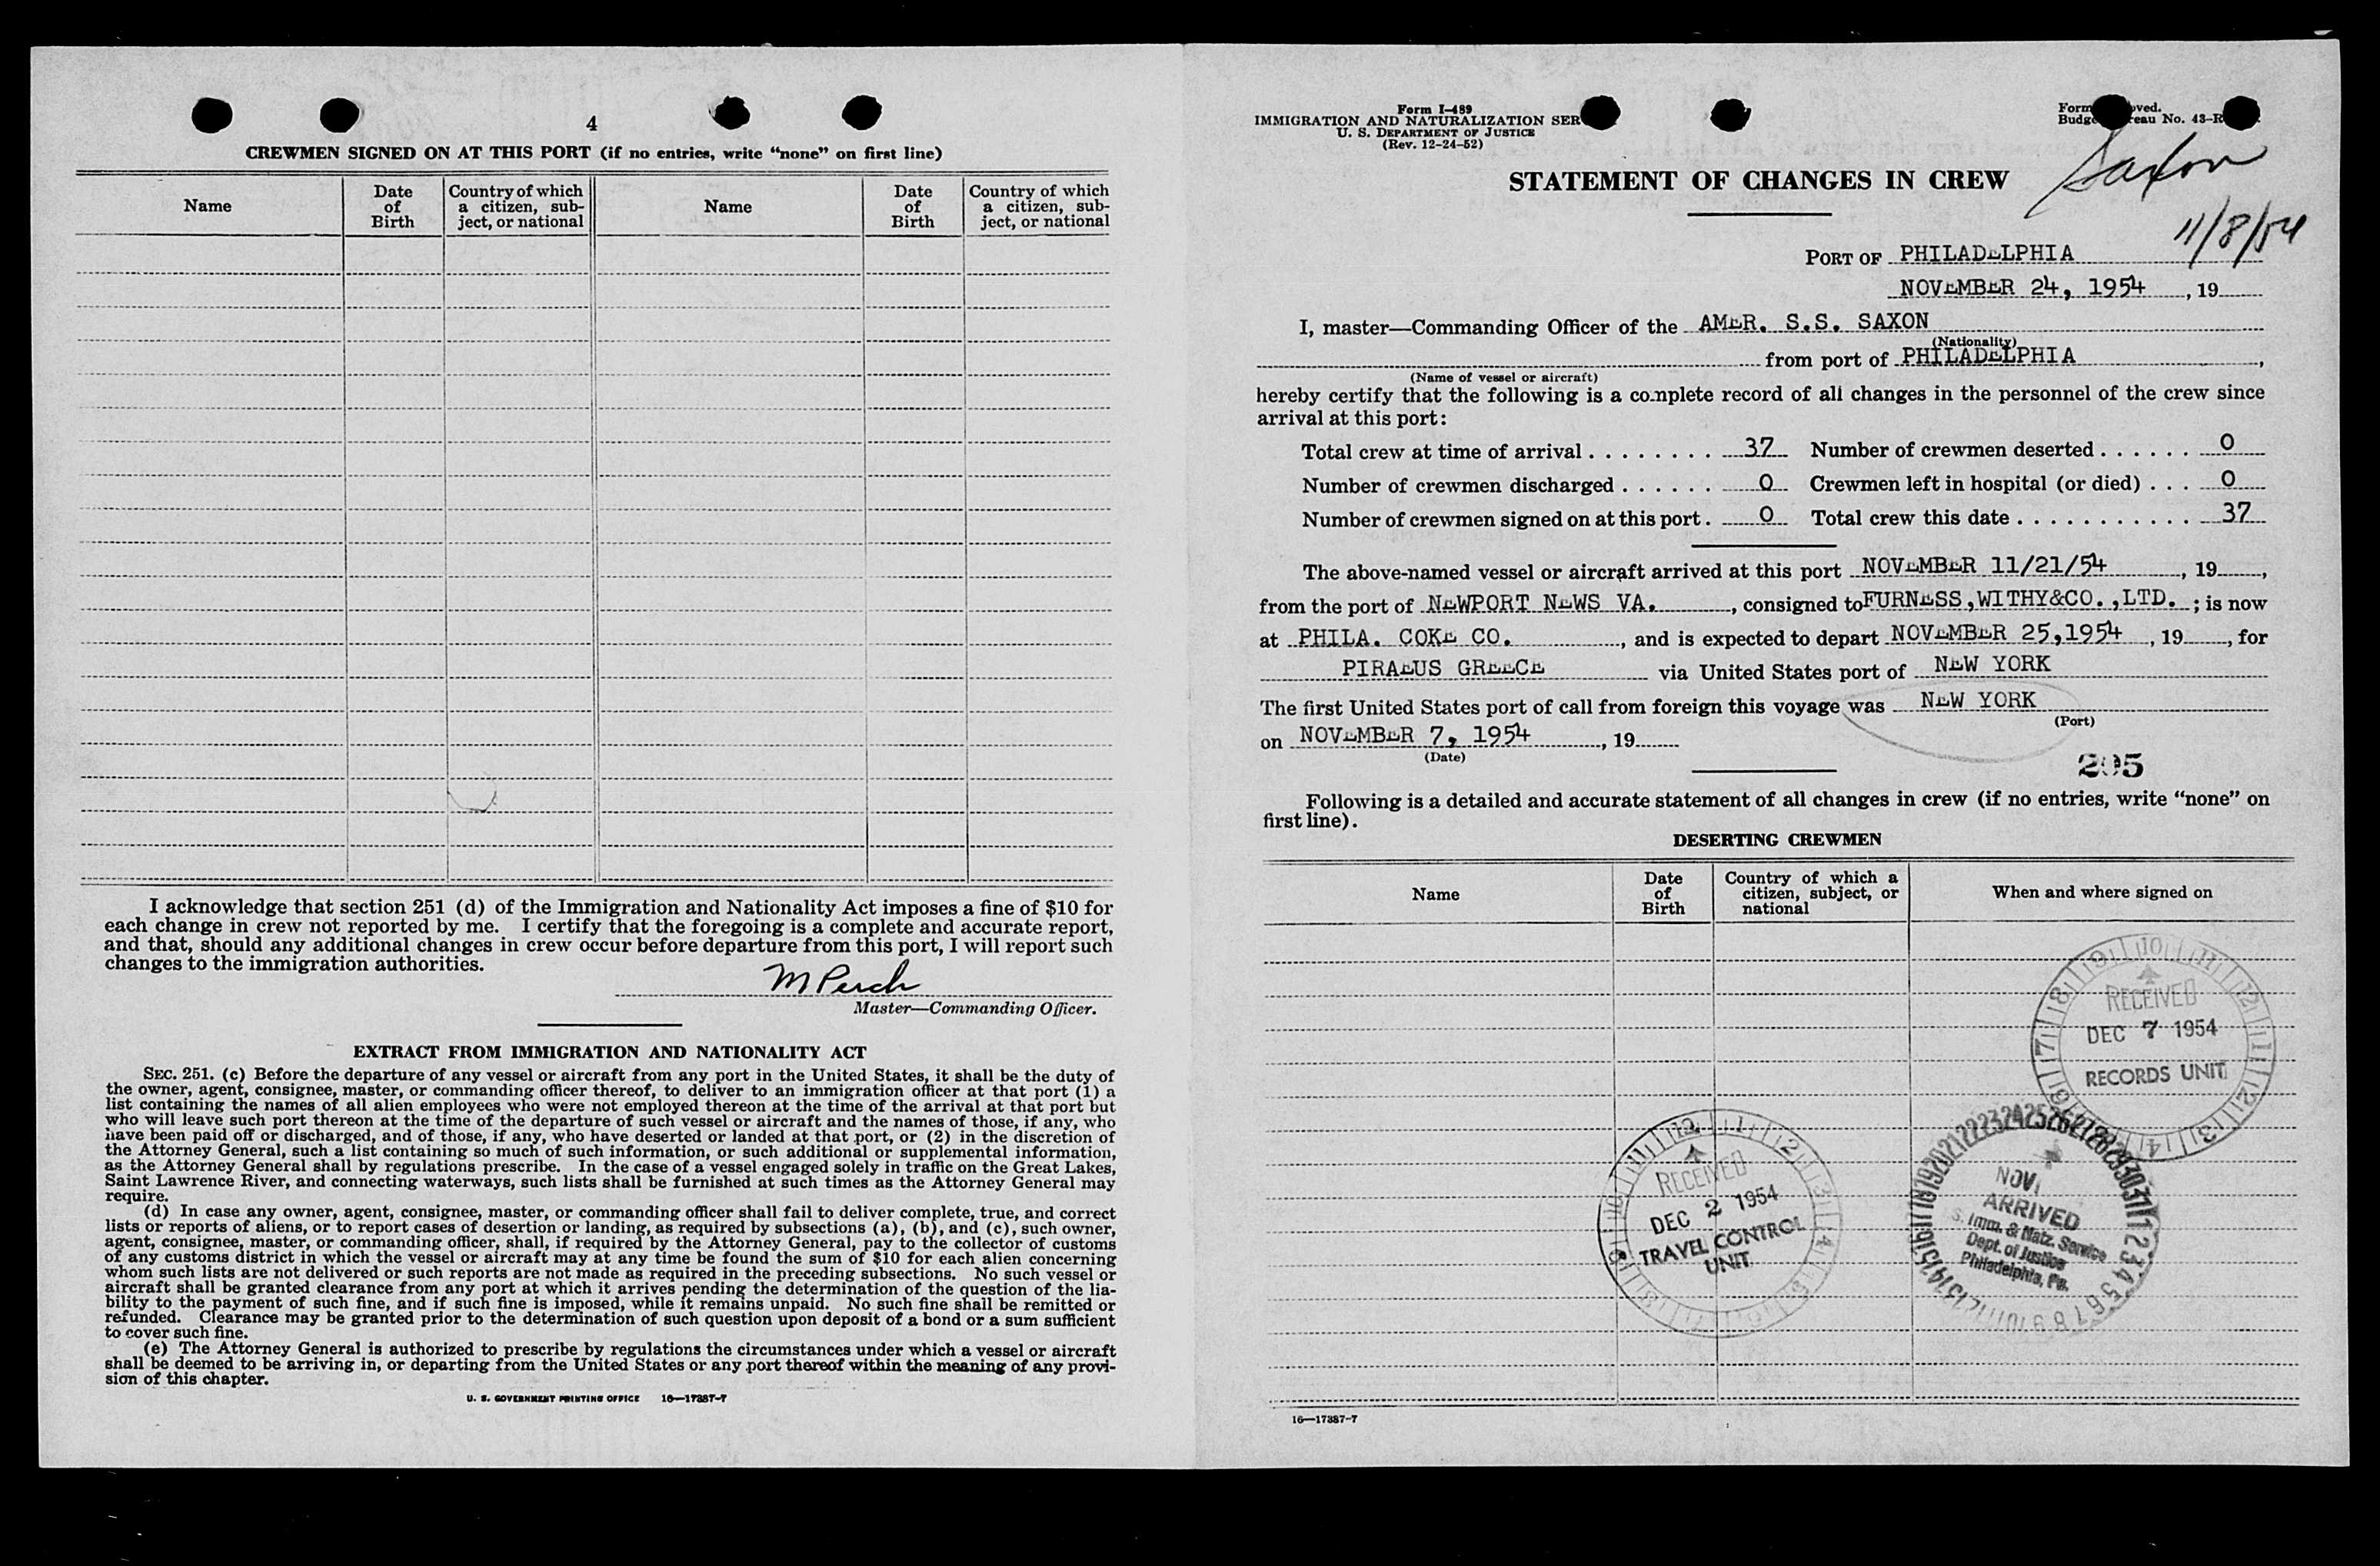 4
CREWMEN SIGNED ON AT THIS PORT (if no entries, write “none” on first line)
Name
Date of Birth
Country of which a citizen, subject, or national
Name
Date of Birth
Country of which a citizen, subject, or national
I acknowledge that section 251 (d) of the Immigration and Nationality Act imposes a fine of $10 for
each change in crew not reported by me. I certify that the foregoing is a complete and accurate report,
and that, should any additional changes in crew occur before departure from this port, I will report such
changes to the immigration authorities.
Master—Commanding Officer.
EXTRACT FROM IMMIGRATION AND NATIONALITY ACT
SEC. 251. (c) Before the departure of any vessel or aircraft from any port in the United States, it shall be the duty of
the owner, agent, consignee, master, or commanding officer thereof, to deliver to an immigration officer at that port (1) a
list containing the names of all alien employees who were not employed thereon at the time of the arrival at that port but
who will leave such port thereon at the time of the departure of such vessel or aircraft and the names of those, if any, who
have been paid off or discharged, and of those, if any, who have deserted or landed at that port, or (2) in the discretion of
the Attorney General, such a list containing so much of such information, or such additional or supplemental information,
as the Attorney General shall by regulations prescribe. In the case of a vessel engaged solely in traffic on the Great Lakes,
Saint Lawrence River, and connecting waterways, such lists shall be furnished at such times as the Attorney General may
require.
(d) In case any owner, agent, consignee, master, or commanding officer shall fail to deliver complete, true, and correct
lists or reports of aliens, or to report cases of desertion or landing, as required by subsections (a), (b), and (c), such owner,
agent, consignee, master, or commanding officer, shall, if required by the Attorney General, pay to the collector of customs
of any customs district in which the vessel or aircraft may at any time be found the sum of $10 for each alien concerning
whom such lists are not delivered or such reports are not made as required in the preceding subsections. No such vessel or
aircraft shall be granted clearance from any port at which it arrives pending the determination of the question of the lia-
bility to the payment of such fine, and if such fine is imposed, while it remains unpaid. No such fine shall be remitted or
refunded. Clearance may be granted prior to the determination of such question upon deposit of a bond or a sum sufficient
to cover such fine.
(e) The Attorney General is authorized to prescribe by regulations the circumstances under which a vessel or aircraft
shall be deemed to be arriving in, or departing from the United States or any port thereof within the meaning of any provi-
sion of this chapter.
U. S. GOVERNMENT PRINTING OFFICE 16—17387-7
Form I-489
IMMIGRATION AND NATURALIZATION SER
U. S. DEPARTMENT OF JUSTICE
(Rev. 12-24-52)
Form oved.
Budge eau No. 43-R
Saxon
11/8/54
STATEMENT OF CHANGES IN CREW
PORT OF PHILADELPHIA
NOVEMBER 24, 1954, 19
I, master—Commanding Officer of the AMER. S.S. SAXON
(Nationality)
from port of PHILADELPHIA,
(Name of vessel or aircraft)
hereby certify that the following is a complete record of all changes in the personnel of the crew since
arrival at this port:
Total crew at time of arrival . . . . . . . . 37 Number of crewmen deserted . . . . . . 0
Number of crewmen discharged . . . . . . 0 Crewmen left in hospital (or died) . . . 0
Number of crewmen signed on at this port . 0 Total crew this date . . . . . . . . . . . 37
The above-named vessel or aircraft arrived at this port NOVEMBER 11/21/54, 19,
from the port of NEWPORT NEWS VA., consigned to FURNESS,WITHY&CO.,LTD. ; is now
at PHILA. COKE CO., and is expected to depart NOVEMBER 25,1954, 19, for
PIRAEUS GREECE via United States port of NEW YORK
The first United States port of call from foreign this voyage was NEW YORK
(Port)
on NOVEMBER 7, 1954, 19
(Date)
295
Following is a detailed and accurate statement of all changes in crew (if no entries, write “none” on
first line).
DESERTING CREWMEN
Name
Date of Birth
Country of which a citizen, subject, or national
When and where signed on
RECEIVED
DEC 7 1954
RECORDS UNIT
RECEIVED
DEC 2 1954
TRAVEL CONTROL
UNIT
NOV
ARRIVED
S. Imm. & Natz. Service
Dept. of Justice
Philadelphia, Pa.
16—17387-7